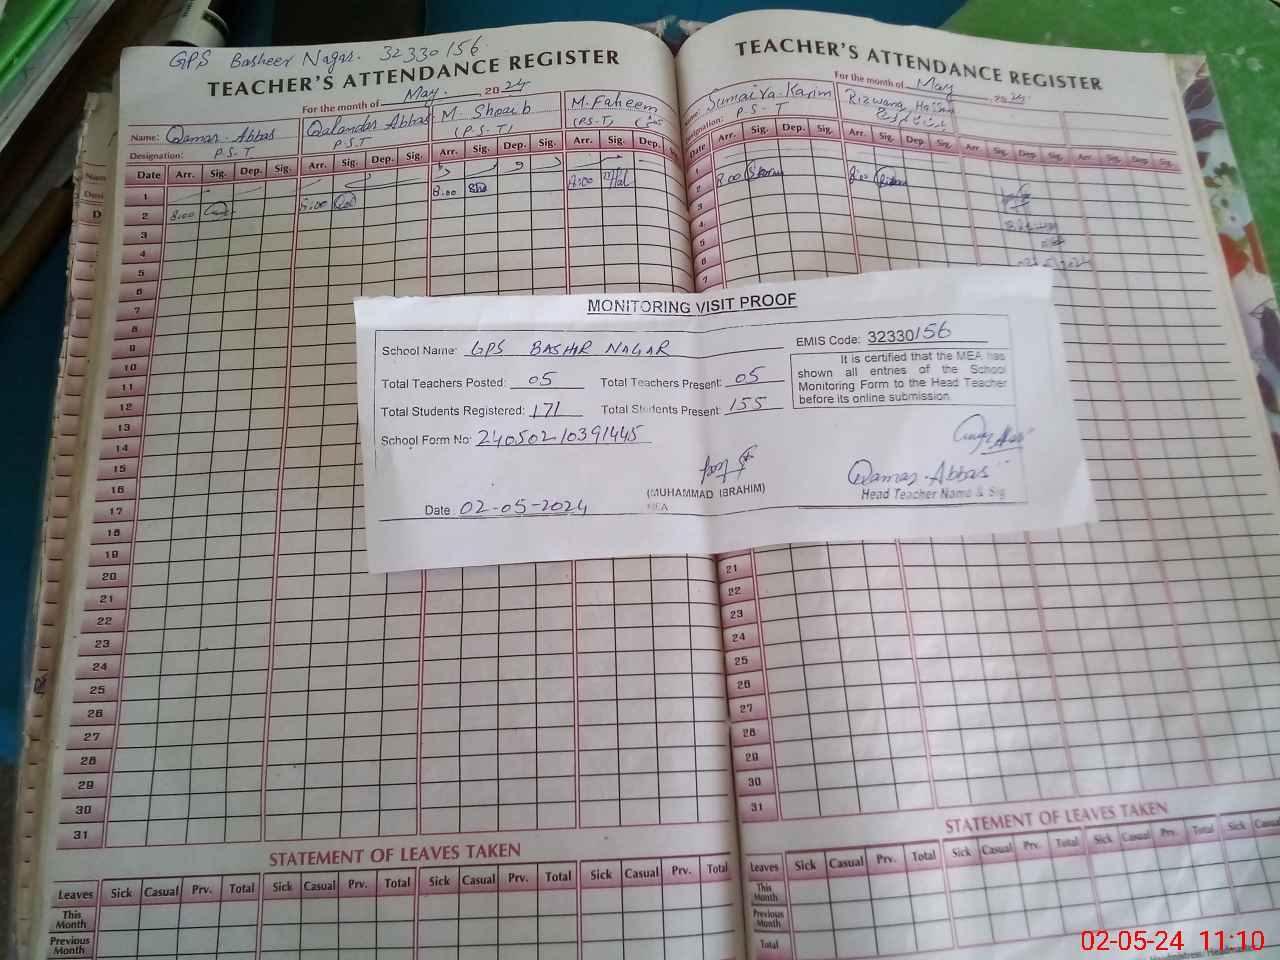 GPS Basheer Nagar. 32330156
TEACHER'S ATTENDANCE REGISTER
For the month of May. 2024
Name: Qamar Abbas Qalandar Abbas M. Shoaib M. Faheem
Designation: P.S.T P.S.T (P.S.T) (P.S.T)
Date Arr. Sig. Dep. Sig. Arr. Sig. Dep. Sig. Arr. Sig. Dep. Sig. Arr. Sig. Dep. Sig.
1
2 8:00 8:00 8:00 8:00
3
4
5
6
7
8
9
10
11
12
13
14
15
16
17
18
19
20
21
22
23
24
25
26
27
28
29
30
31
STATEMENT OF LEAVES TAKEN
Leaves Sick Casual Prv. Total Sick Casual Prv. Total Sick Casual Prv. Total Sick Casual Prv. Total
This Month
Previous Month
TEACHER'S ATTENDANCE REGISTER
For the month of May 2024
Name: Sumaira Karim Rizwana Hassan
Designation: P.S.T
Date Arr. Sig. Dep. Sig. Arr. Sig. Dep. Sig. Arr Sig. Dep Sig. Arr Sig. Dep. Sig.
1
2 8:00 8:00
3
4
5
6
7
21
22
23
24
25
26
27
28
29
30
31
STATEMENT OF LEAVES TAKEN
Leaves Sick Casual Prv. Total Sick Casual Prv. Total Sick Casual Prv. Total Sick Casual
This Month
Previous Month
Total
MONITORING VISIT PROOF
School Name: GPS BASHIR NAGAR
EMIS Code: 32330156
Total Teachers Posted: 05 Total Teachers Present: 05
Total Students Registered: 171 Total Students Present: 155
School Form No: 24050210391445
It is certified that the MEA has
shown all entries of the School
Monitoring Form to the Head Teacher
before its online submission.
(MUHAMMAD IBRAHIM)
MEA
Qamar Abbas
Head Teacher Name & Sig
Date 02-05-2024
02-05-24 11:10